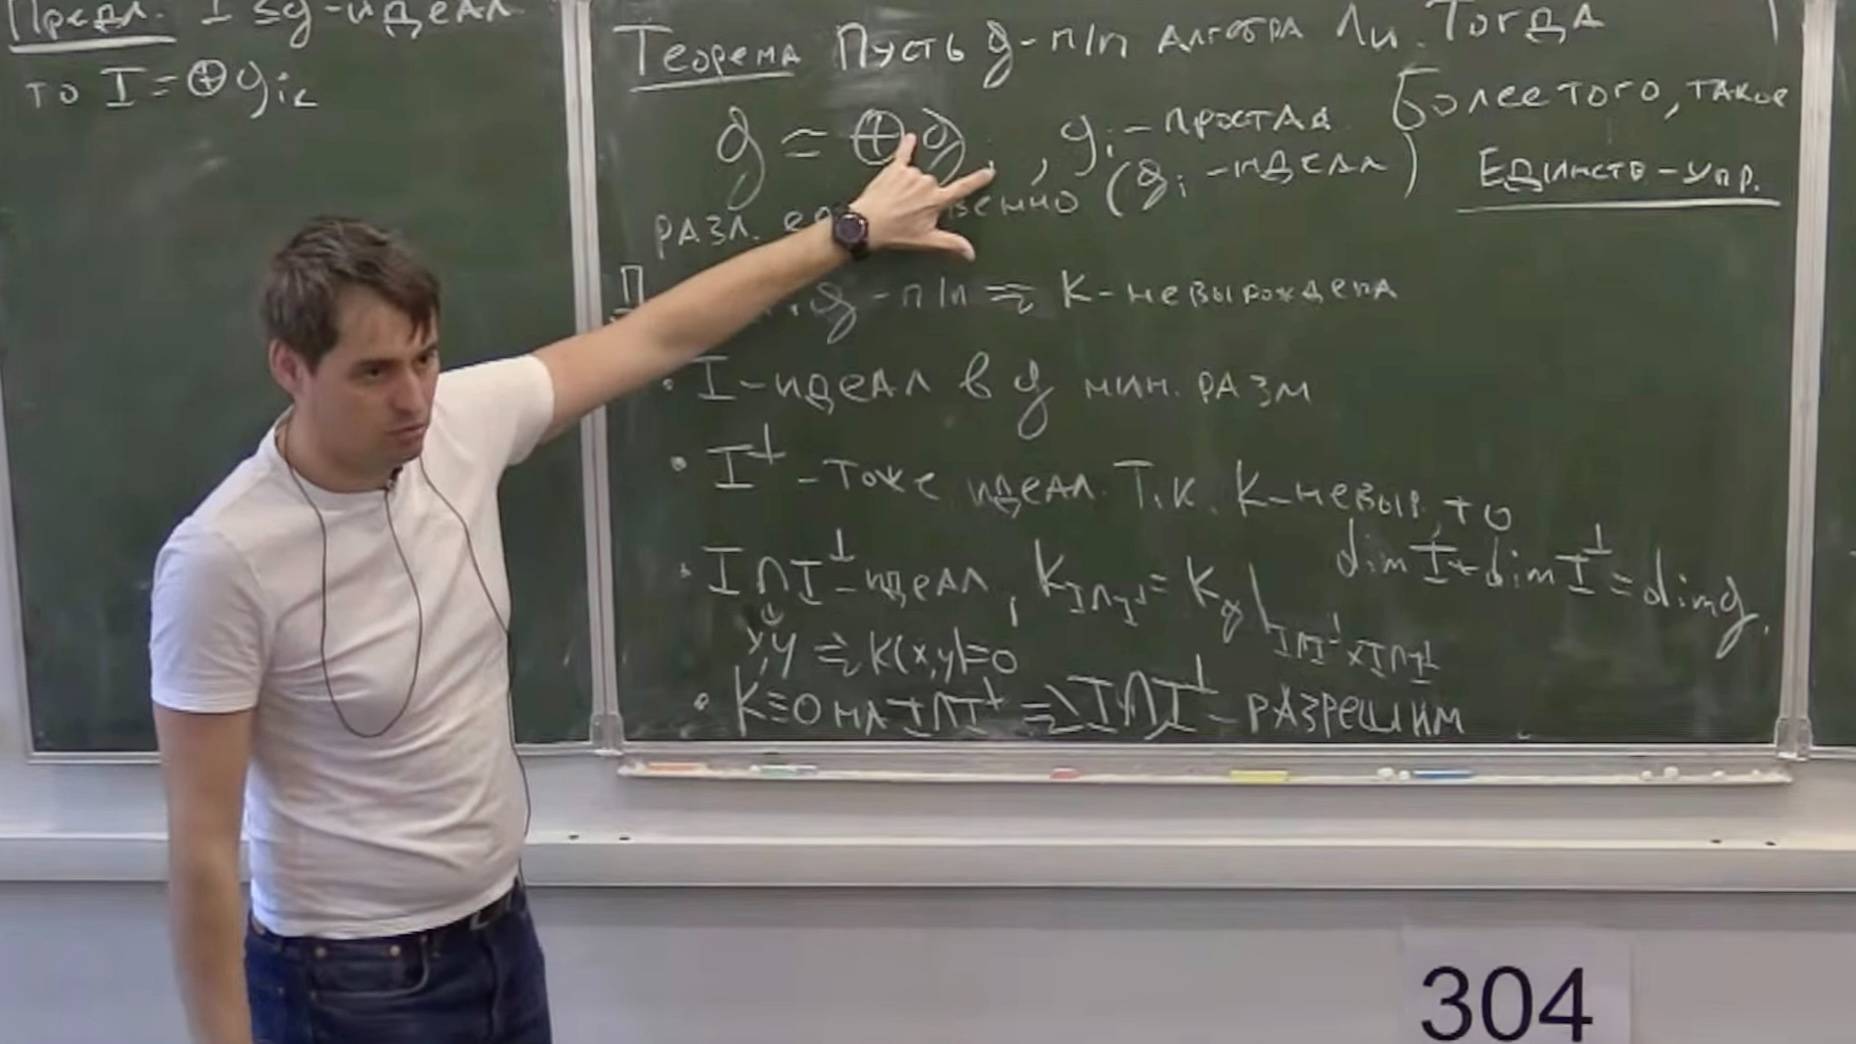 Предл. I ≤ g - идеал
то I = ⊕ g_{i_k}
Теорема Пусть g - п/п алгебра Ли. Тогда
g = ⊕ g_i, g_i - простая (g_i - идеал)
Более того, такое
разл.
Единств - упр.
g - п/п ⇒ K - невырождена
• I - идеал в g мин. разм
• I^⊥ - тоже идеал. Т.к. K - невыр, то
dim I + dim I^⊥ = dim g.
• I ∩ I^⊥ - идеал, K_{I∩I^⊥} = K_g|_{I∩I^⊥ × I∩I^⊥}
x, y ⇒ K(x,y)=0
• K ≡ 0 на I∩I^⊥ ⇒ I∩I^⊥ - разрешим
304